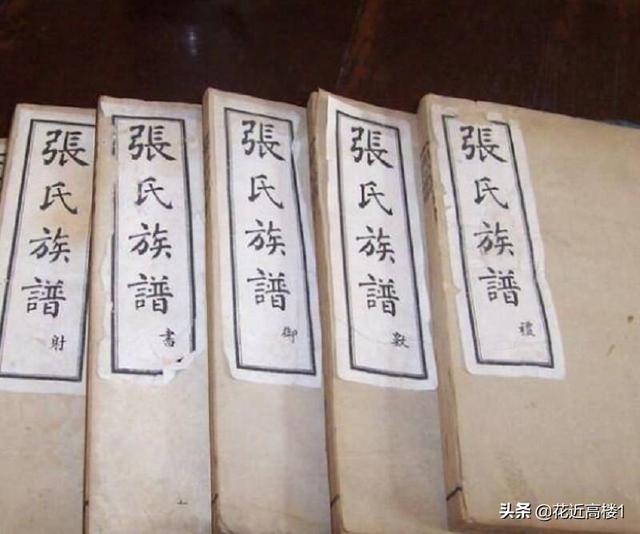 張氏族譜 射
張氏族譜 書
張氏族譜 御
張氏族譜 數
張氏族譜 禮
头条 @花近高楼1